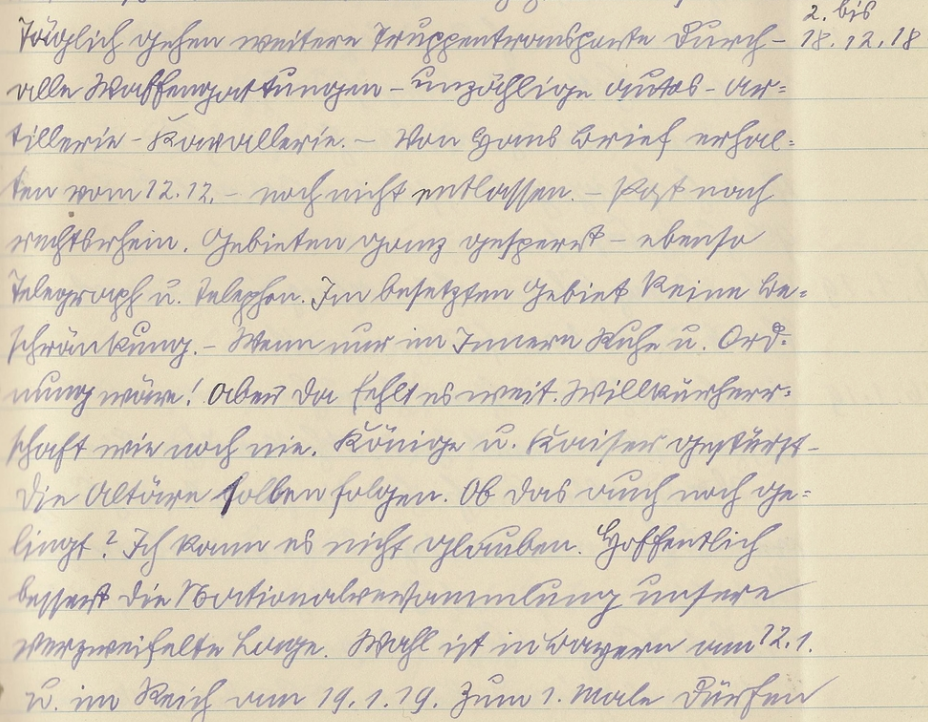 2. bis
18.12.18
Täglich gehen weitere Truppentransporte durch-
alle Waffengattungen - unzählige Autos - Ar=
tillerie - Kavallerie. - Von Hans Brief erhal=
ten vom 12.12. - noch nicht entlassen. - Post nach
rechtsrhein. Gebieten ganz gesperrt - ebenso
Telegraph u. Telephon. Im besetzten Gebiet keine Be=
schränkung. - Wenn nur im Innern Ruhe u. Ord=
nung wäre! Aber da fehlt es weit. Willkürherr=
schaft wie noch nie. Könige u. Kaiser gestürzt -
die Altäre sollen folgen. Ob das auch noch ge=
lingt? Ich kann es nicht glauben. Hoffentlich
bessert die Nationalversammlung unsere
verzweifelte Lage. Wahl ist in Bayern am 12.1.
u. im Reich am 19.1.19. Zum 1. Male dürfen